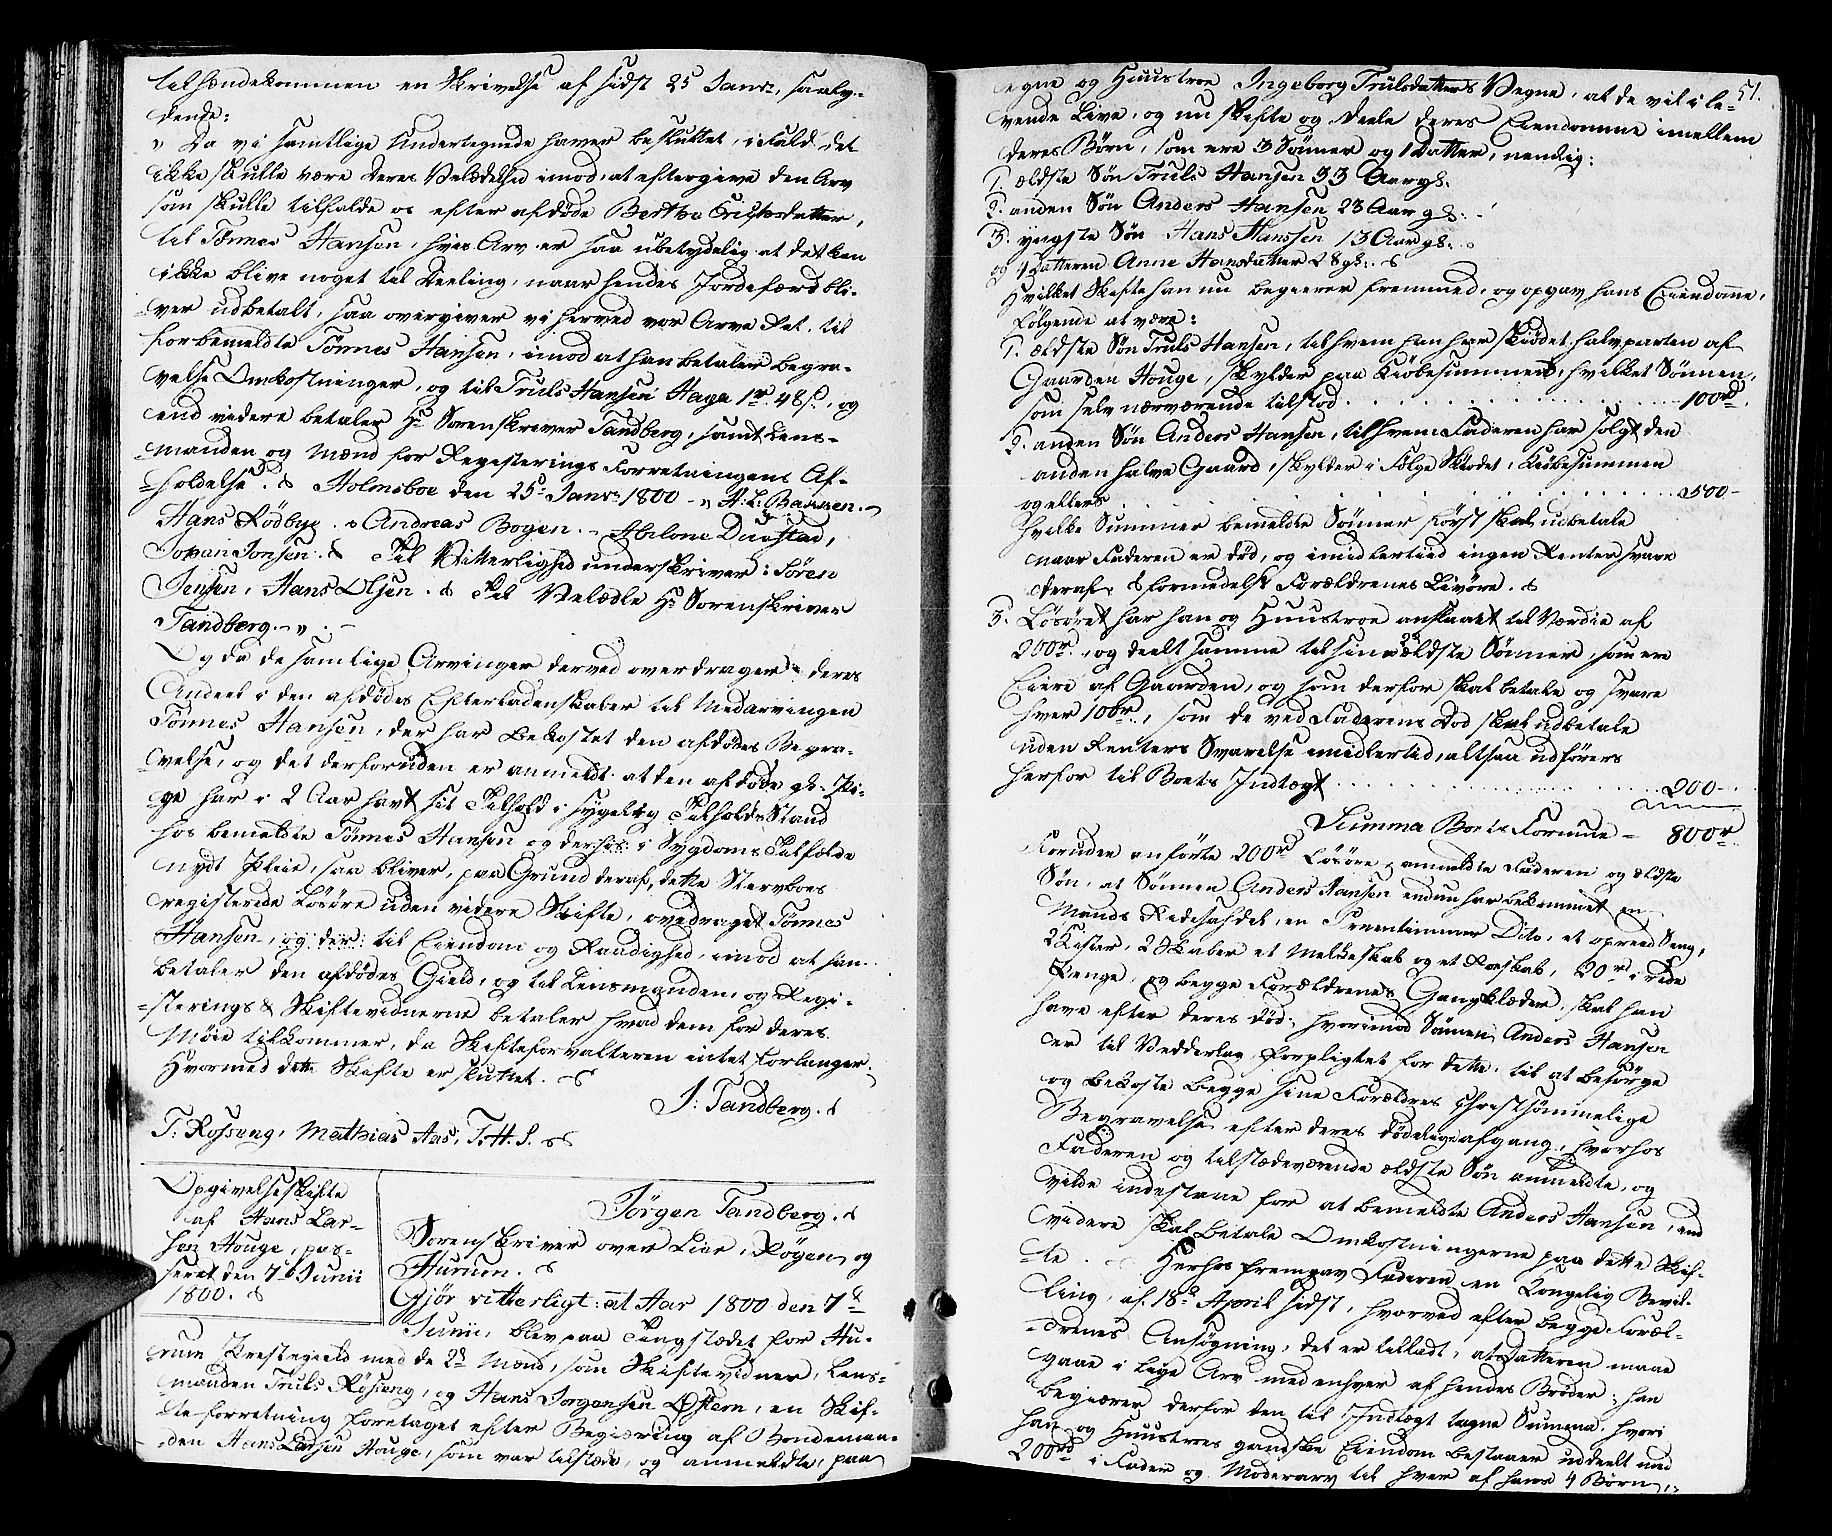 tilhændekommen en Skrivelse af sidst 25 Janr, saaly-
dende:
" Da vi samtlige Undertegnede haver besluttet, ifald det
ikke skulle være Deres Velædelhed imod, at eftergive den Arv
som skulle tilfalde os efter afdøde Berthe Cristisdatter,
til Tønnes Hansen, hvis Arv er saa ubetydelig at det kan
ikke blive noget til Deeling, naar hendes Jordefærd bli-
ver udbetalt, saa overgiver vi herved vor Arve Ret til
forbemeldte Tønnes Hansen, imod at han betaler Begra-
velse Omkostninger, og til Truls Hansen Haga 1rd 48 s, og
end videre betaler Hr Sorenskriver Tandberg, samt Lens-
manden og Mænd for Registerings Forretningens Af-
holdelse. Holmsboe den 25de Janr 1800 - A: L: Baasen.
Hans Rødbye. Andreas Bogen. Abelone Dustad,
Johan Jonsen. Til Vitterlighed underskriver: Søren
Jensen, Hans Olsen. Til Velædle Hr Sorenskriver
Tandberg. "
Og da de samtlige Arvinger derved overdrager deres
Andeel i den afdødes Efterladenskaber til Medarvingen
Tønnes Hansen, der har bekostet den afdødes Begra-
velse, og det derforuden er anmeldt at den afdøde gl. Pi-
ge har i 2 Aar havt sit Tilhold i sygelig Tilholds Stand
hos bemeldte Tønnes Hansen og derhos i Sygdoms Tilfælde
nydt Pleie, saa bliver, paa Grund deraf, dette Stervboes
registerede Løsøre uden videre Skifte, overdraget Tønnes
Hansen, og der: til Eiendom og Raadighed, imod at han
betaler den afdødes Gield, og til Lensmanden og Regi-
sterings & Skiftevidnerne betaler hvad dem for deres
Møie tilkommer, da Skifteforvalteren intet forlanger.
Hvormed dette Skifte er sluttet.
J: Tandberg.
T: Rossung, Mathias Aas, T. H. S.
Opgivelseskifte
af Hans Lar-
sen Houge, pas-
seret den 7de Junii
1800.
Jörgen Tandberg.
Sorenskriver over Lier, Røgen og
Hurum.
Gjør vitterligt: at Aar 1800 den 7de
Junii, blev paa Tingstædet for Hu-
rum Præstegield med de 2de Mænd, som Skiftevidner, Lens-
manden Truls Røseng, og Hans Jorgensen Østern, en Skif-
te forretning foretaget efter Begiæring af Bondeman-
den Hans Larsen Houge, som var tilstæde, og anmeldte, paa
51.
egne og Huustroe Ingeborg Trulsdatters Vegne, at de vil i le-
vende Live, og nu skifte og deele deres Eiendomme imellem
deres Børn, som ere 3 Sønner og 1 Datter, nemlig:
1. ældste Søn Truls Hansen 33 Aar gl.
2. anden Søn Anders Hansen 23 Aar gl.
3. yngste Søn Hans Hanssen 13 Aar gl.
og 1 Datteren Anne Hansdatter 28 gl.
Hvilket Skifte han nu begierer fremmed, og opgav hans Eiendomme,
følgende at være:
1. ældste Søn Truls Hansen, til hvem han har skiødet halvparten af
Gaarden Houge, skylder paa Kiøbesummen, hvilket Sønnen,
som selv nærværende tilstod . . . . . . 100rd.
2. anden Søn Anders Hansen, til hvem Faderen har solgt den
anden halve Gaard, skylder i Følge Skiødet, Kiøbesummen
og ellers . . . . . . 500 -
Hvilke Summer bemeldte Sønner først skal udbetale
naar Faderen er død, og imidlertiid ingen Renter svare
deraf, formedelst Forældrenes Livøre.
3. Løsøret har han og Huustroe anslaaet til Værdie af
200rd, og deelt samme til sine 2de ældste Sønner, som ere
Eiere af Gaarden, og som derfor skal betale og svare
hver 100rd, som de ved Faderens Død skal udbetale
uden Renters Svarelse imidlertid, altsaa udføres
herfor til Boets Indtægt . . . . . . 200 -
Summa Boets Formue - 800rd.
Foruden anførte 200rd Løsøre anmeldte Faderen og ældste
Søn, at Sønnen Anders Hansen endnu har bekommet en
Mands Ridesahdel, en Fruentimmer Dito, et opreed Seng,
2 Kister, 2 Skaber et Melkeskab og et Roeskab, 20rd i rede
Penge, og begge Forældrenes Gangklæder, skal han
have efter deres Død, hvorimod Sønnen Anders Hansen
er til Vedderlag forpligtet for dette, til at besørge
og bekoste begge sine Forældres christsømmelige
Begravelse efter deres dødelige afgang, hvorhos
Faderen og tilstædeværende ældste Søn anmeldte, og
vilde indestaae for at bemeldte Anders Hansen, end
videre skal betale Omkostningerne paa dette Skif-
te. Herhos fremgav Faderen en Kongelig Bevil-
ling, af 18de April sidst, hvorved efter begge Foræl-
drenes Ansøgning, det er tilladt, at Datteren maae
gaae i lige Arv med enhver af hendes Brødre; han
begiærer derfor den til Indtægt tagne Summa, hvori
han og Huustroes gandske Eiendom bestaaer uddeelt med
200rd i Fader og Moderarv til hver af hans 4 Børn,